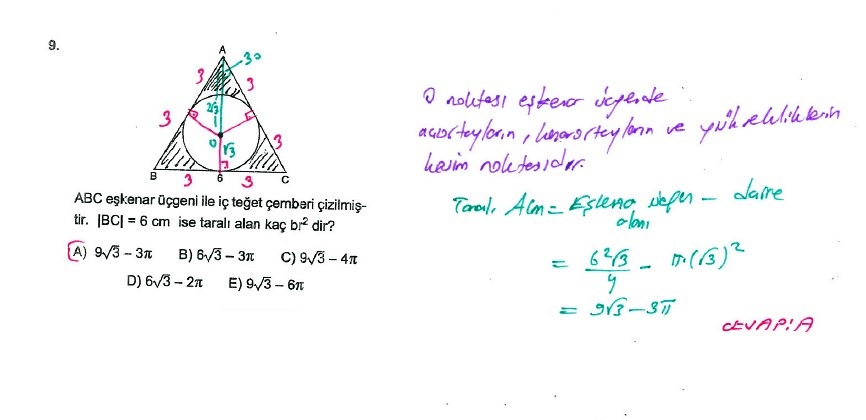 9.
A
30
3
3
3
2√3
3
O
√3
3
B
3
6
3
C
ABC eşkenar üçgeni ile iç teğet çemberi çizilmiş-
tir. |BC| = 6 cm ise taralı alan kaç br² dir?
A) 9√3 − 3π B) 6√3 − 3π C) 9√3 − 4π
D) 6√3 − 2π E) 9√3 − 6π
O noktası eşkenar üçgende
açıortayların, kenarortayların ve yüksekliklerin
kesim noktasıdır.
Taralı Alan = Eşkenar üçgen − daire
alanı
= 6²√3 / 4 − π.(√3)²
= 9√3 − 3π
CEVAP: A